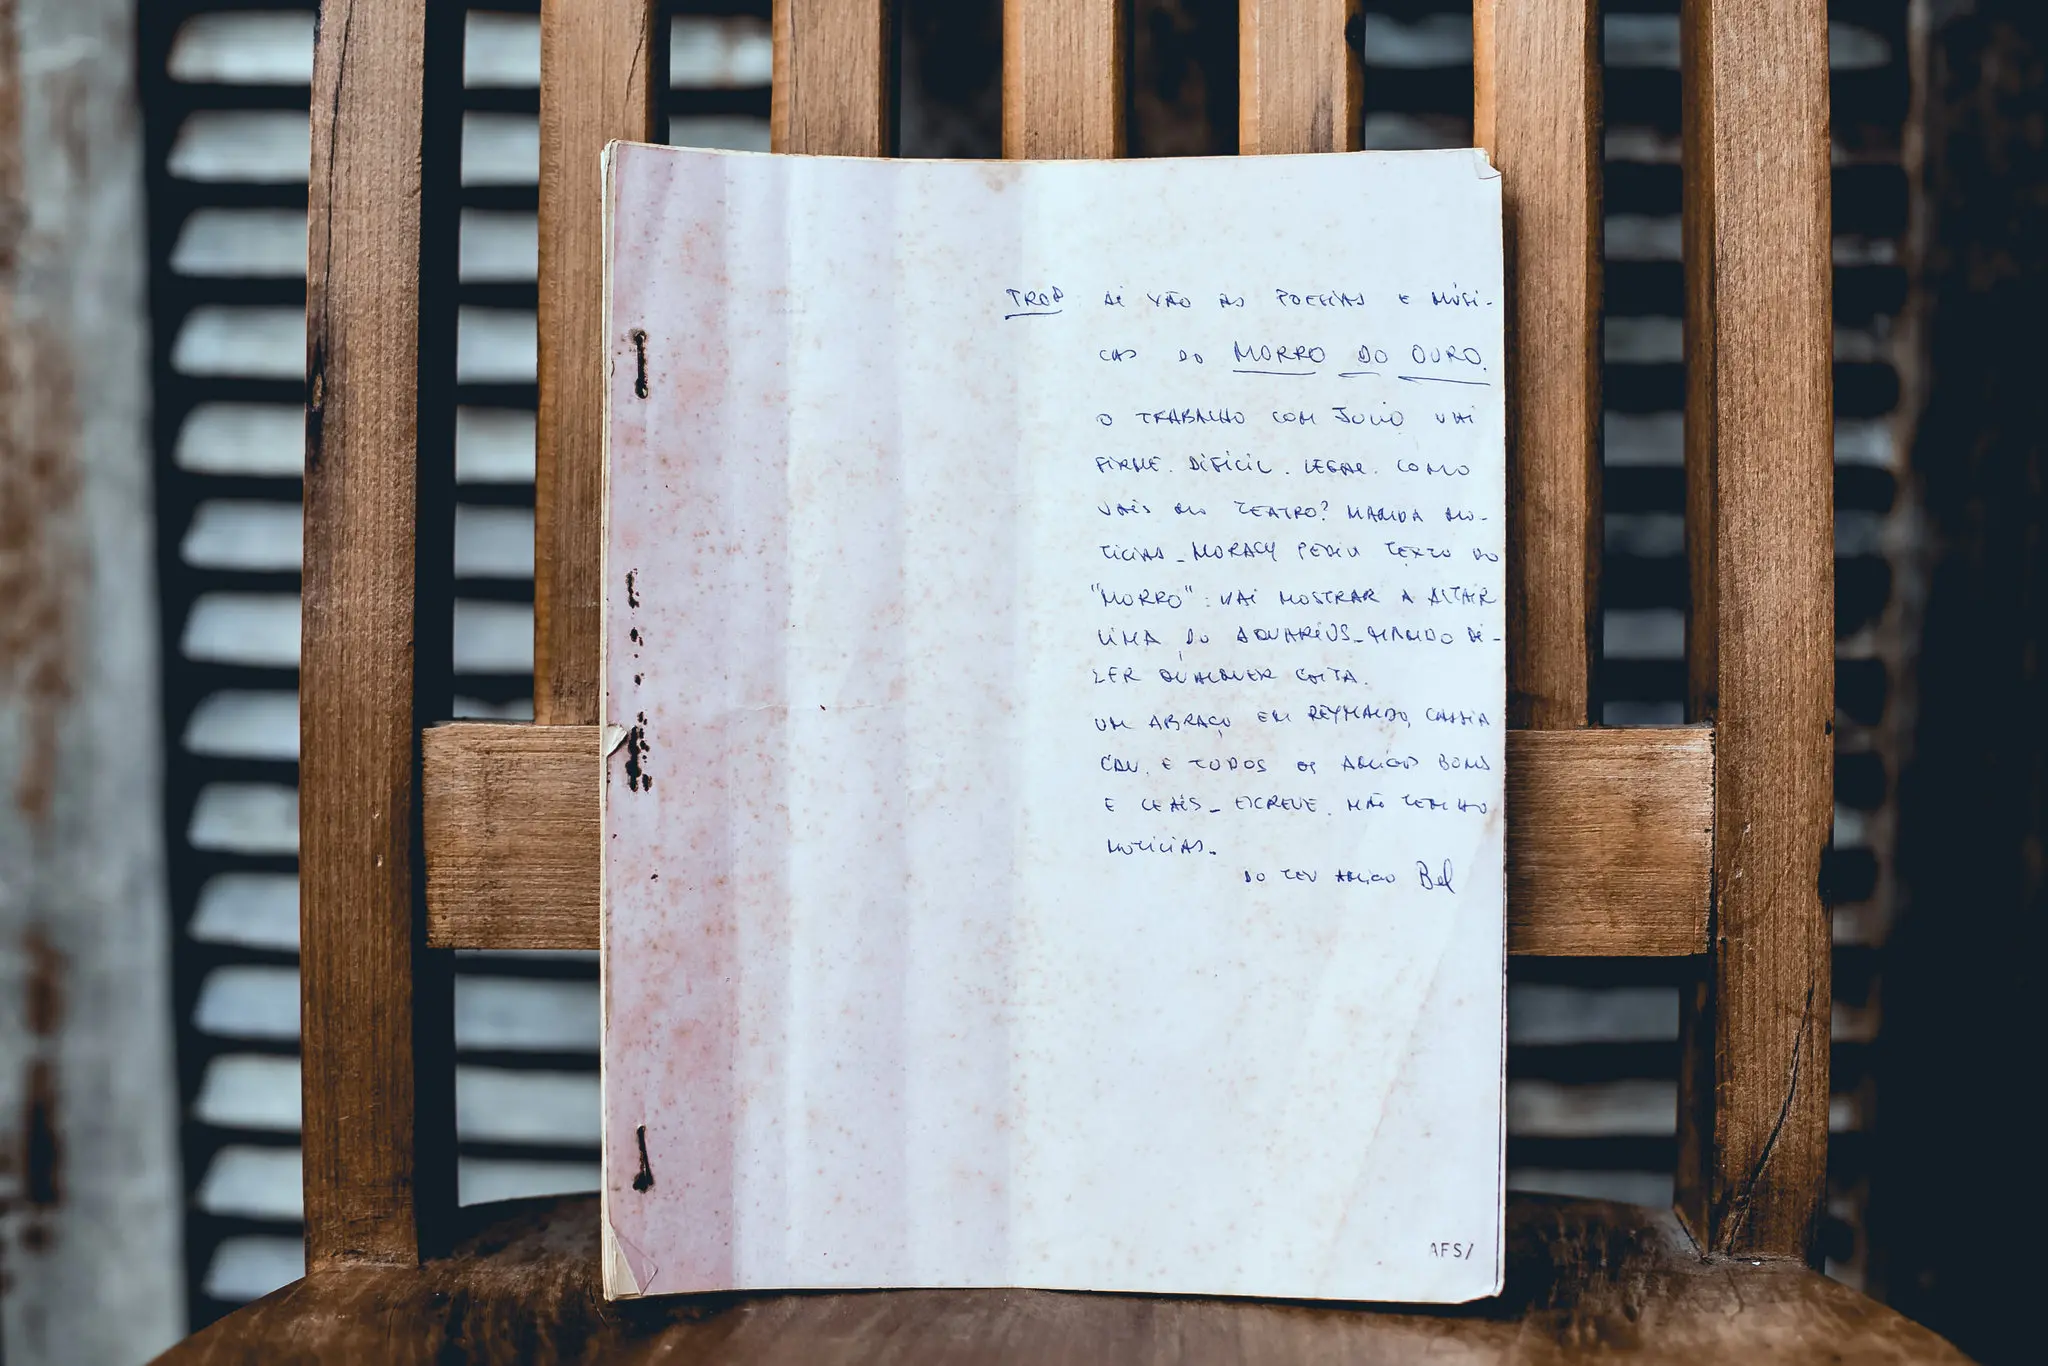 TROP AÍ VÃO AS POESIAS E MÚSI-
CAS DO MORRO DO OURO.
O TRABALHO COM JULIO VAI
FIRME. DIFÍCIL. LEGAL. COMO
VAIS NO TEATRO? MANDA NO-
TÍCIAS_ MORACY PEDIU TEXTO DO
"MORRO": VAI MOSTRAR A ALTAIR
LIMA DO AQUARIUS_ MANDO DI-
ZER QUALQUER COISA.
UM ABRAÇO EM REYNALDO, CASSIA
E TODOS OS AMIGOS BONS
E LEAIS_ ESCREVE. NÃO TENHO
NOTÍCIAS_
DO TEU AMIGO
AFS/